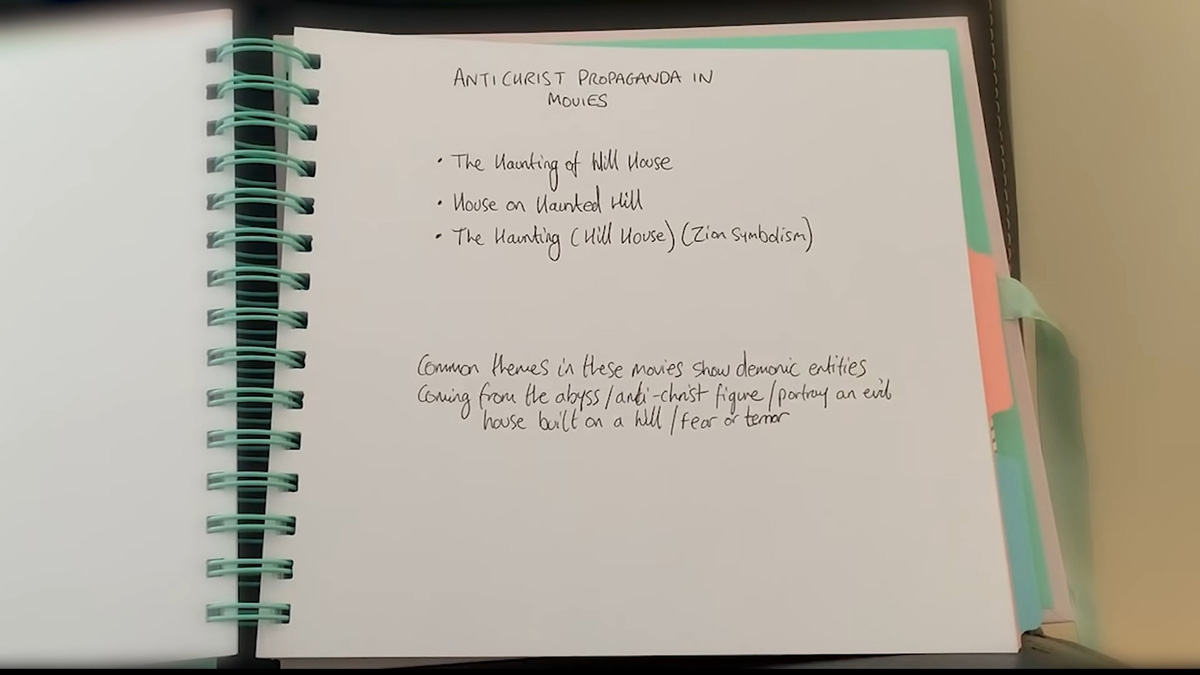 ANTICHRIST PROPAGANDA IN
MOVIES
• The Haunting of Hill House
• House on Haunted Hill
• The Haunting (Hill House) (Zion Symbolism)
Common themes in these movies show demonic entities
Coming from the abyss/anti-christ figure/portray an evil
house built on a hill/fear or terror